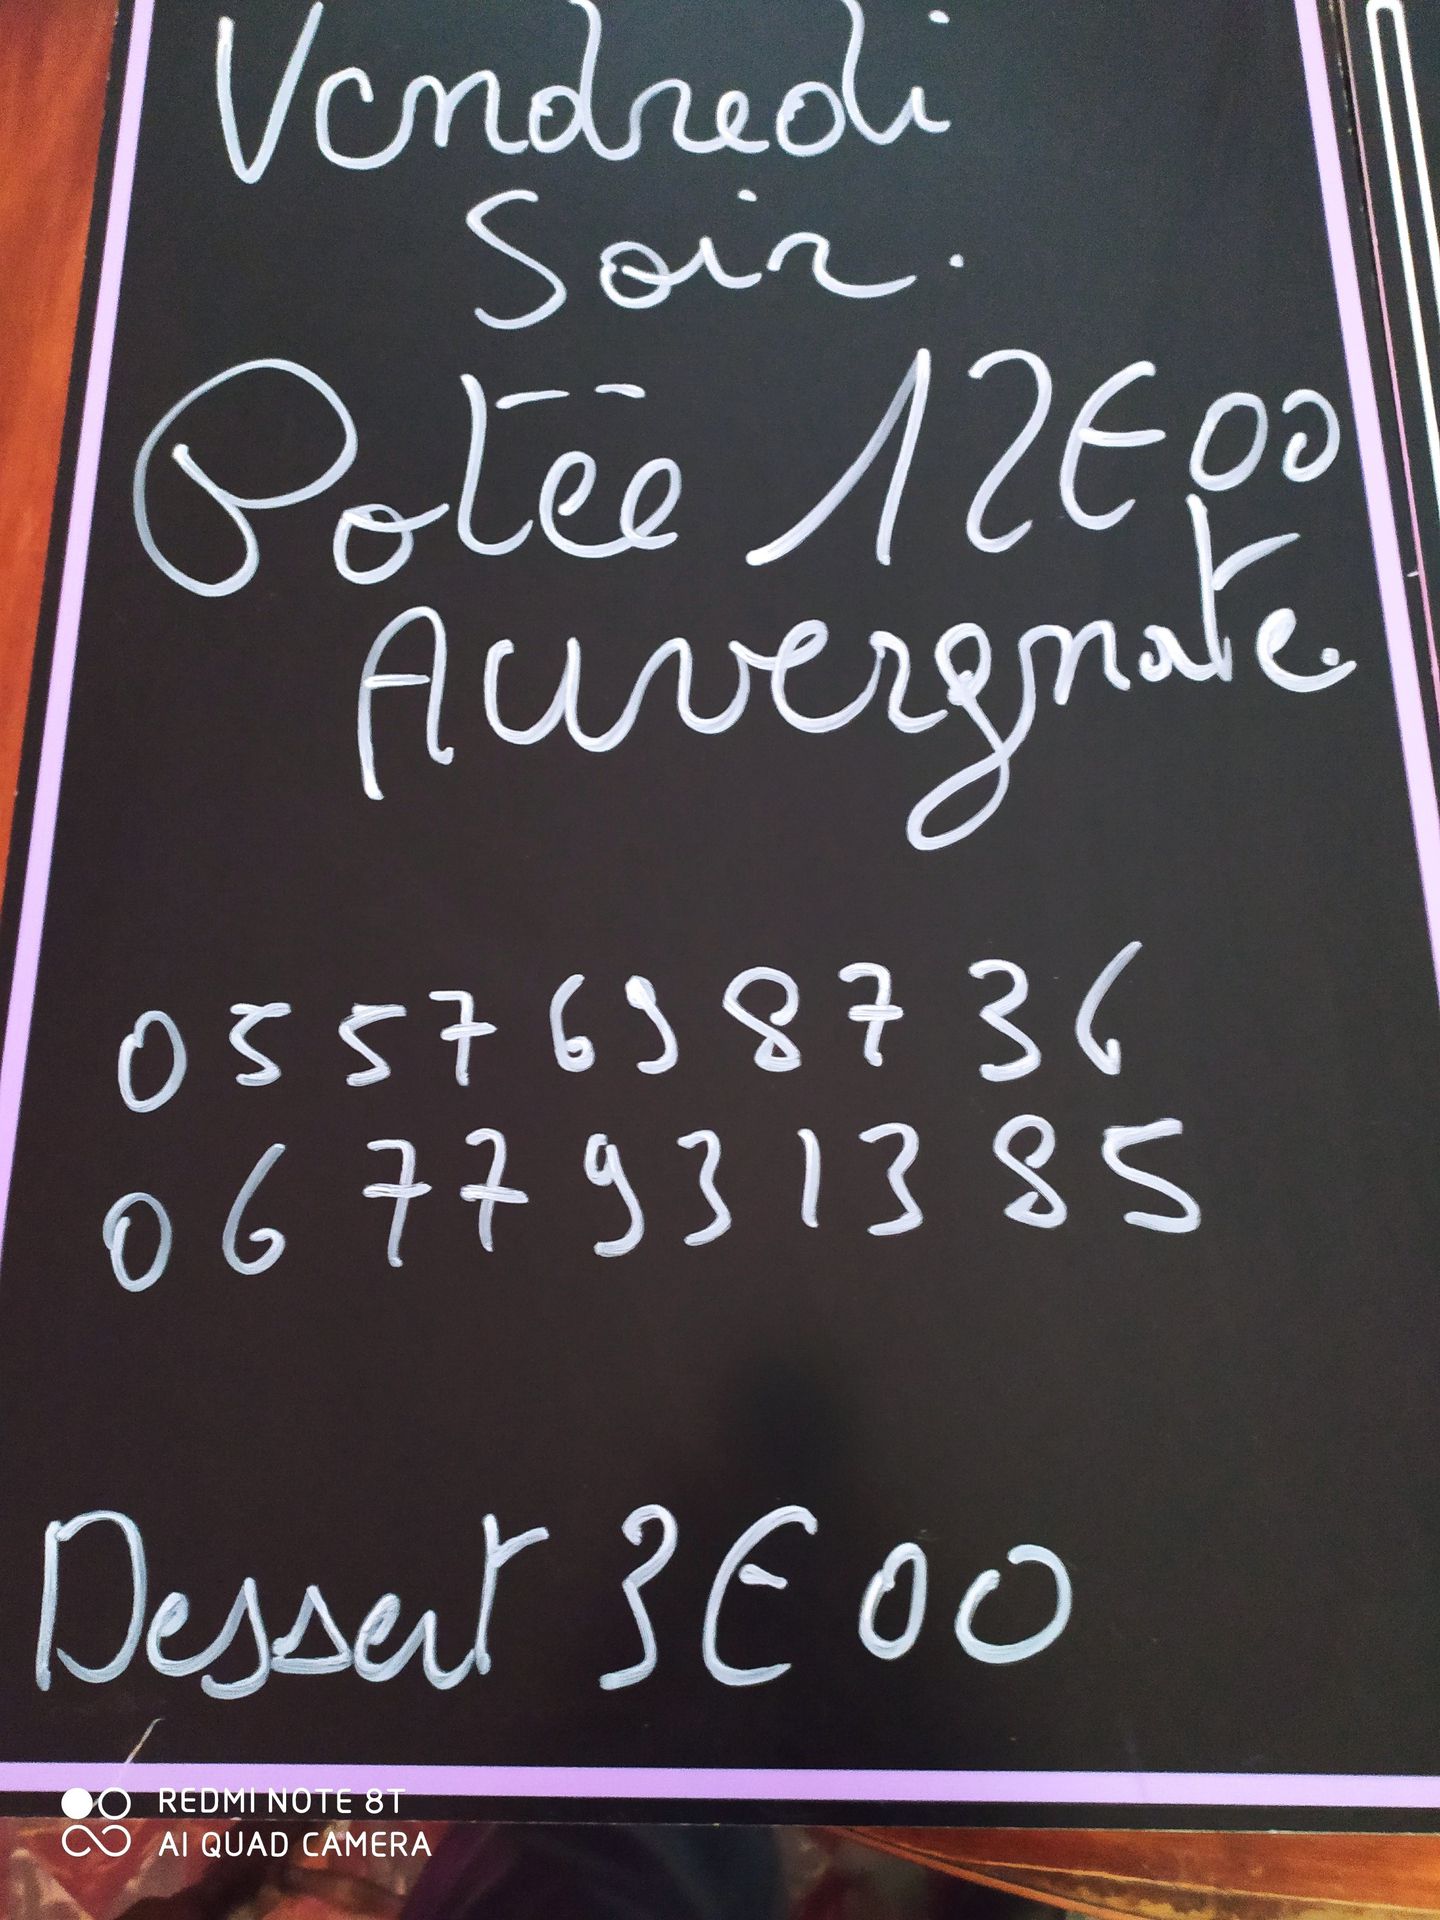 Vendredi
Soir.
Potée 12€00
Auvergnate.
05 57 69 87 36
06 77 93 13 85
Dessert 3€00
REDMI NOTE 8T
AI QUAD CAMERA